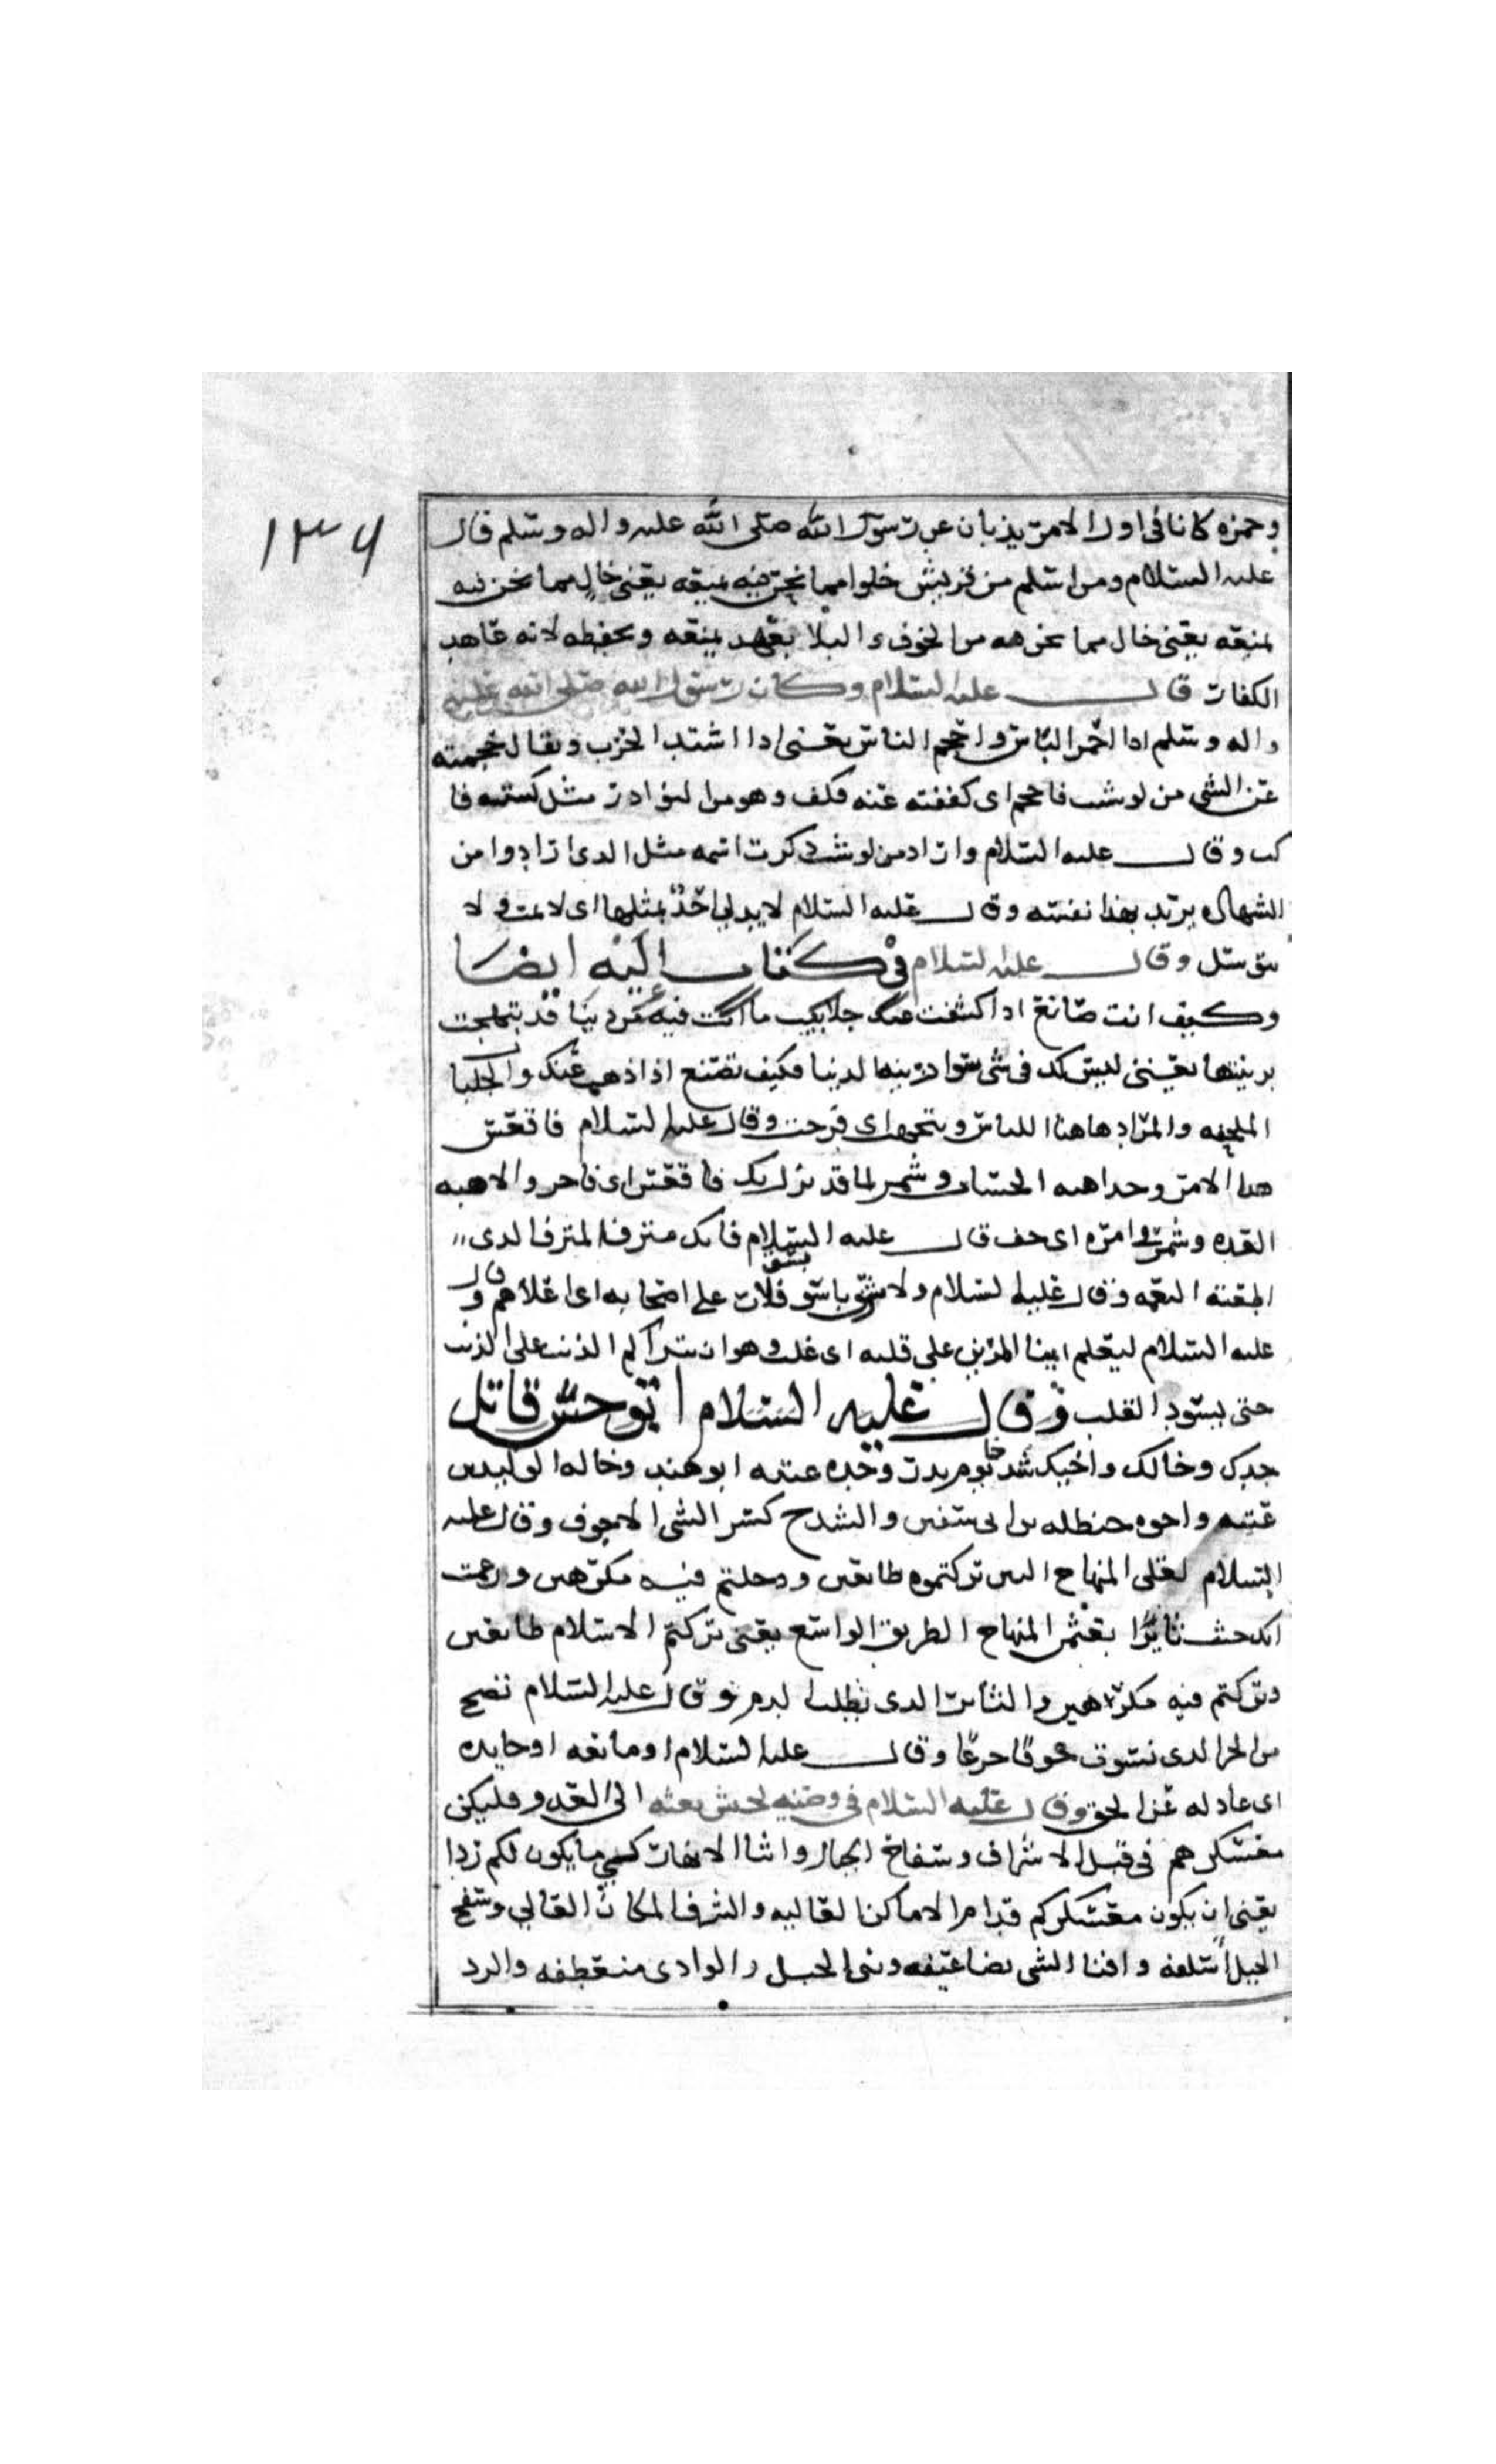 ١٣٦
وحمزه كانا فى اول الامر يذبان عن رسول الله صلى الله عليه واله وسلم قال
عليه السلام ومن اسلم من قريش خلوا مما نحن فيه بمنعه يعنى خال مما نحن فيه
لمنعه يعنى خال مما نحن فيه من الخوف والبلا بعهد يمنعه ويحفظه لانه عاهد
الكفار قال عليه السلام وكان رسول الله صلى الله عليه
واله وسلم اذا احمر الباس واحجم الناس يعنى اذا اشتد الحرب ويقال حجمته
عن الشى فاحجم اى كففته عنه فكف وهو من النوادر مثل كببته فا
كب وقال عليه السلام واراد من لو شت ذكرت اسمه مثل الدى ارادوا من
الشهاده يريد بهذا نفسه وقال عليه السلام لا يدلى احد بمثلها اى لا يمت ولا
يتوسل وقال عليه السلام فى كتاب اليه ايضا
وكيف انت صانع اذا كشفت عنك جلابيب ما انت فيه من دنيا قد تبهجت
بزينتها يعنى ليس لك فى شى سوا زينه الدنيا فكيف تصنع اذا ذهب عنك والجلبا
الملحفه والمراد هاهنا اللباس وتبهجت اى فرحت وقال عليه السلام فاقعس
هذا الامر وخذ اهبه الحساب وشمر لما قد نزل بك فاقعس اى تاخر والاهبه
العده وشمر فى امره اى خف قال عليه السلام فانك مترف المترف الدى
اطغته النعمه وقال عليه السلام ولا شرف باسق بسق فلان على اصحابه اى علاهم وقال
عليه السلام ليعلم اينا المرين على قلبه اى غلب وهو ان يتراكم الذنب على الذنب
حتى يسود القلب وقال عليه السلام ابو حسن قاتل
جدك وخالك واخيك شدخا يوم بدر وجده عتبه ابو هند وخاله الوليد بن
عتبه واخوه حنظله بن ابى سفين والشدخ كسر الشى الاجوف وقال عليه
السلام لعلى المنهاج الدى تركتموه طايعين ودخلتم فيه مكرهين وزعمت
انك جئت ثايرا بعثمن المنهاج الطريق الواسع يعنى تركتم الاسلام طايعين
وتركتم فيه مكرهين والثاير الدى يطلب الدم وقال عليه السلام تضج
من الحر وقال عليه السلام او مايعه او حايده
اى عادله عن الحق وقال عليه السلام فى وصيه لجيش بعثه الى العدو فليكن
معسكركم فى قبل الاشراف وسفاح الجبال واثنا الانهار كيما يكون لكم ردا
يعنى ان يكون معسكركم قدام الاماكن العاليه والشرف المكان العالى وسفح
الجبل اسفله واثنا الشى تضاعيفه وثنى الحبل والوادى منعطفه والرد